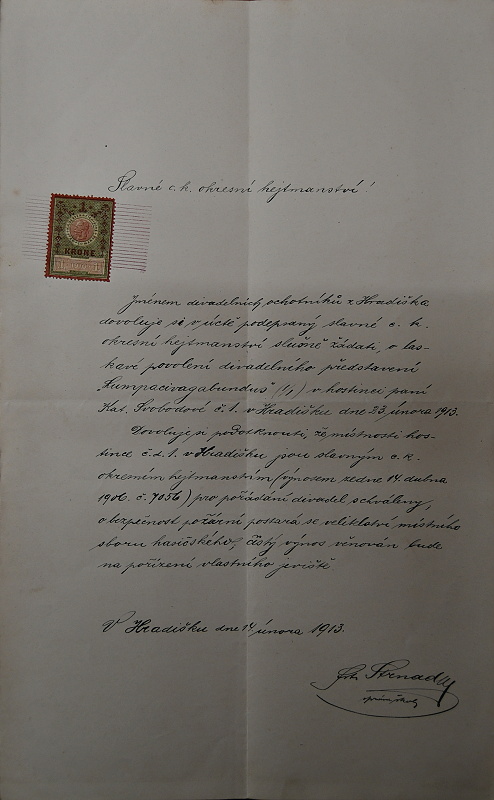 Slavné c. k. okresní hejtmanství!
1
KRONE
Jménem divadelních ochotníků z Hradiška
dovoluje si v úctě podepsaný slavné c. k.
okresní hejtmanství slušně žádati, o las-
kavé povolení divadelního představení
Lumpacivagabunduš (1/1) v hostinci paní
Kat. Svobodové č. 1. v Hradišku dne 23. února 1913.
Dovoluje si podotknouti, že místnosti hos-
tince č. d. 1. v Hradišku jsou slavným c. k.
okresním hejtmanstvím (výnosem ze dne 14. dubna
1906. č. 7056) pro pořádání divadel schváleny,
o bezpečnost požární postará se velitelství místního
sboru hasičského, čistý výnos věnován bude
na pořízení vlastního jeviště
V Hradišku dne 14. února 1913.
Strnad
správ. školy